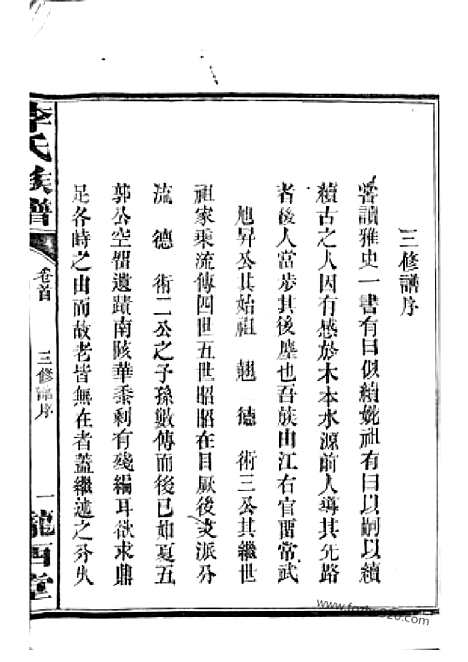 三修譜序
嘗讀雅史一書有曰似續妣祖有曰以嗣以續
續古之人因有感於木本水源前人導其先路
者後人當步其後塵也吾族由江右官畱當武
旭昇公其始祖 翹 德 術三公其繼世
祖家乘流傳四世五世昭昭在目厥後支派分
流 德 術二公之子孫數傳而後已如夏五
郭公空畱遺蹟南陔華黍剩有殘編耳欲求鼎
足各時之由而故老皆無在者蓋繼述之分久
李氏族譜
卷首
三修譜序
一
隴西堂